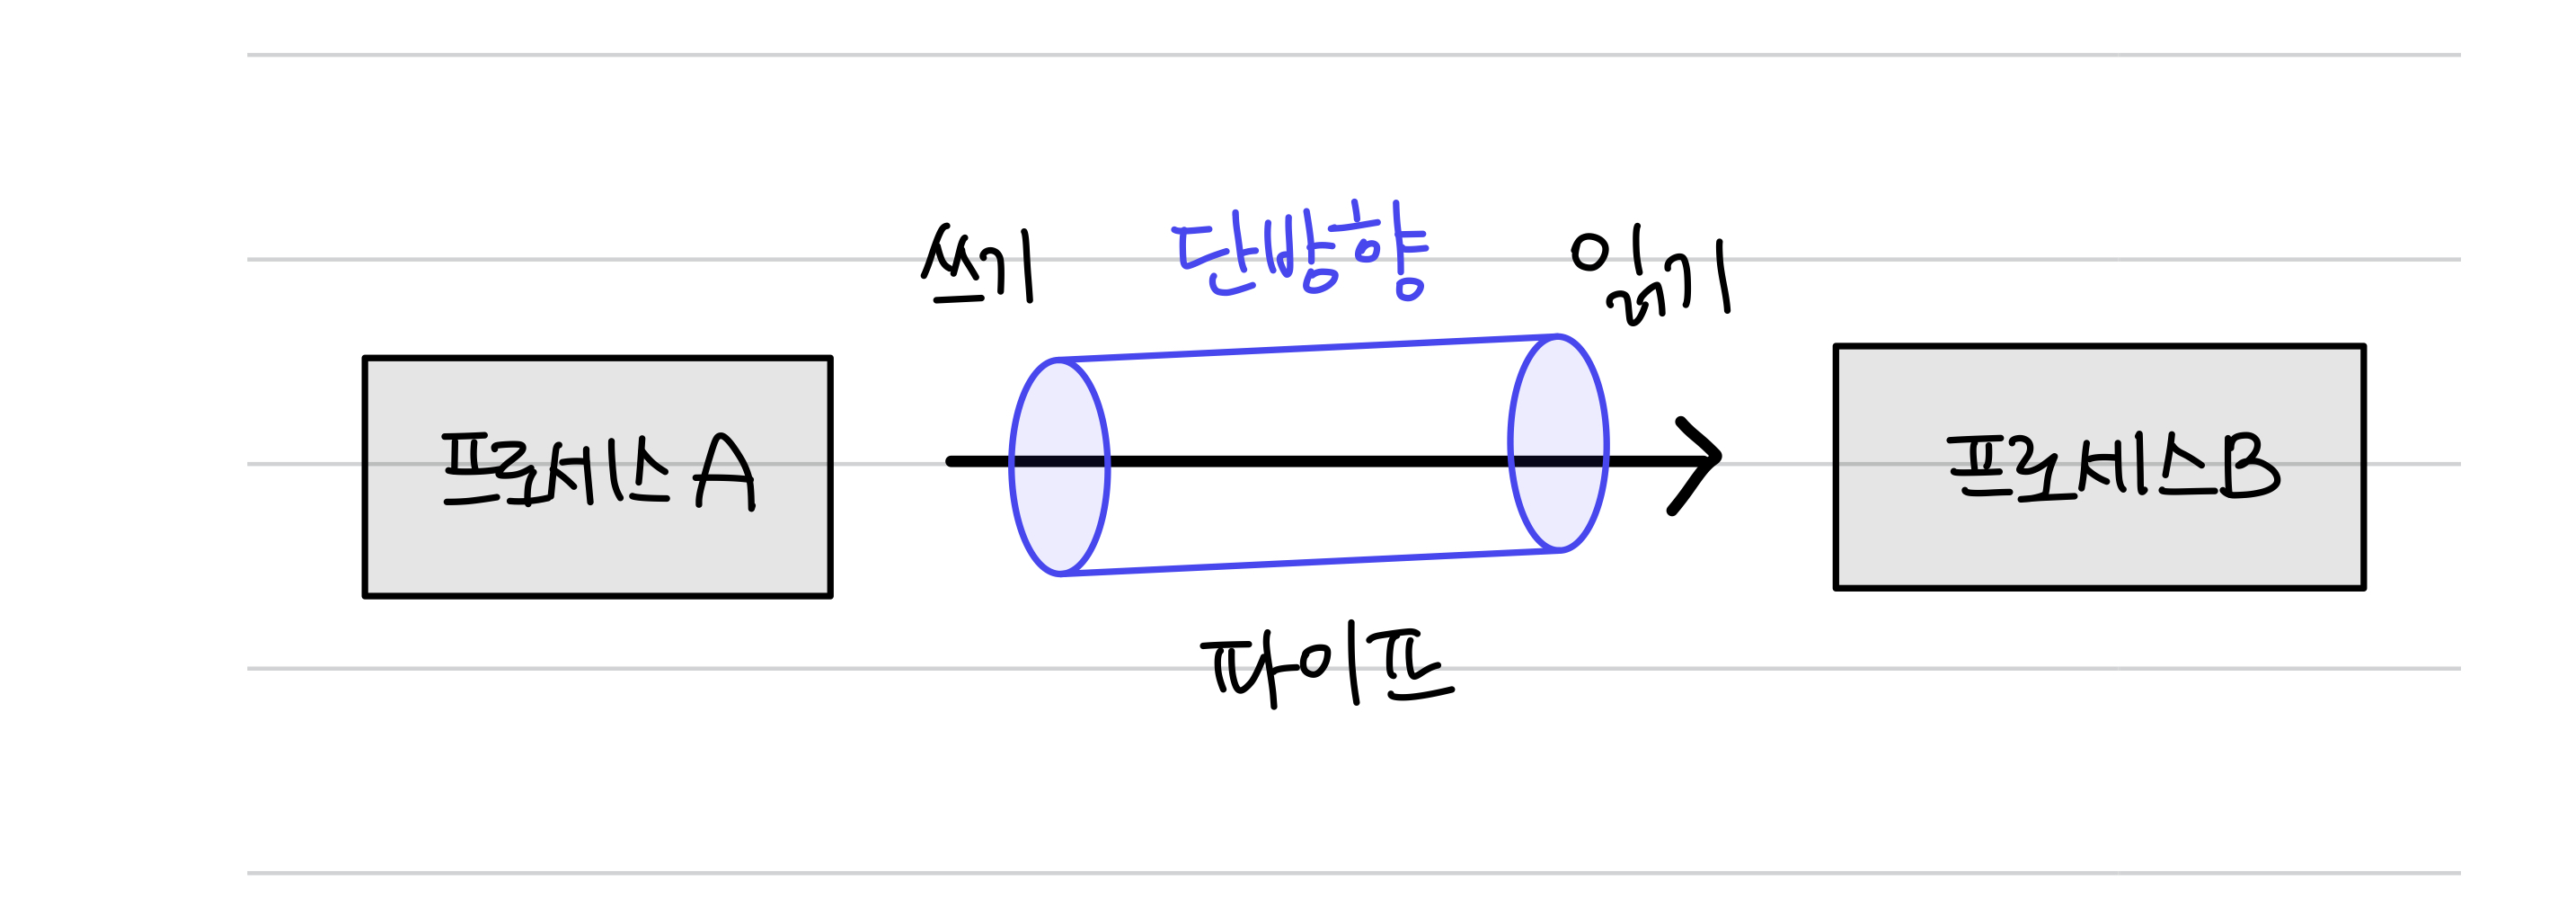 쓰기 단방향 읽기
프로세스 A 프로세스 B
파이프